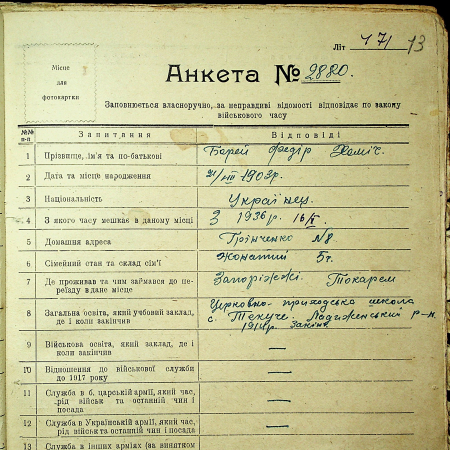 Літ 471 13
Місце
для
фотокартки
Анкета № 2880.
Заповнюється власноручно, за неправдиві відомості відповідає по закону
військового часу
№№ п-п Запитання Відповіді
1 Прізвище, ім'я та по-батькові Борей Федір Хоміч.
2 Дата та місце народження 21/VIII 1903р.
3 Національність Українец.
4 З якого часу мешкає в даному місці З 1936р. 16/V.
5 Домашня адреса Грінченко №8
6 Сімейний стан та склад сім'ї Жонатий 5т.
7 Де проживав та чим займався до пе-
реїзду в дане місце Запоріжжі. Токарем
8 Загальна освіта, який учбовий заклад,
де і коли закінчив Церковно-приходська школа
с. Текуче. Ладиженський р-н.
1914р. Закінч.
9 Військова освіта, який заклад, де і
коли закінчив —
10 Відношення до військової служби
до 1917 року —
11 Служба в б. царській армії, який час,
рід військ та останній чин і
посада —
12 Служба в Українській армії, який час,
рід військ та останній чин і посада —
13 Служба в інших арміях (за винятком